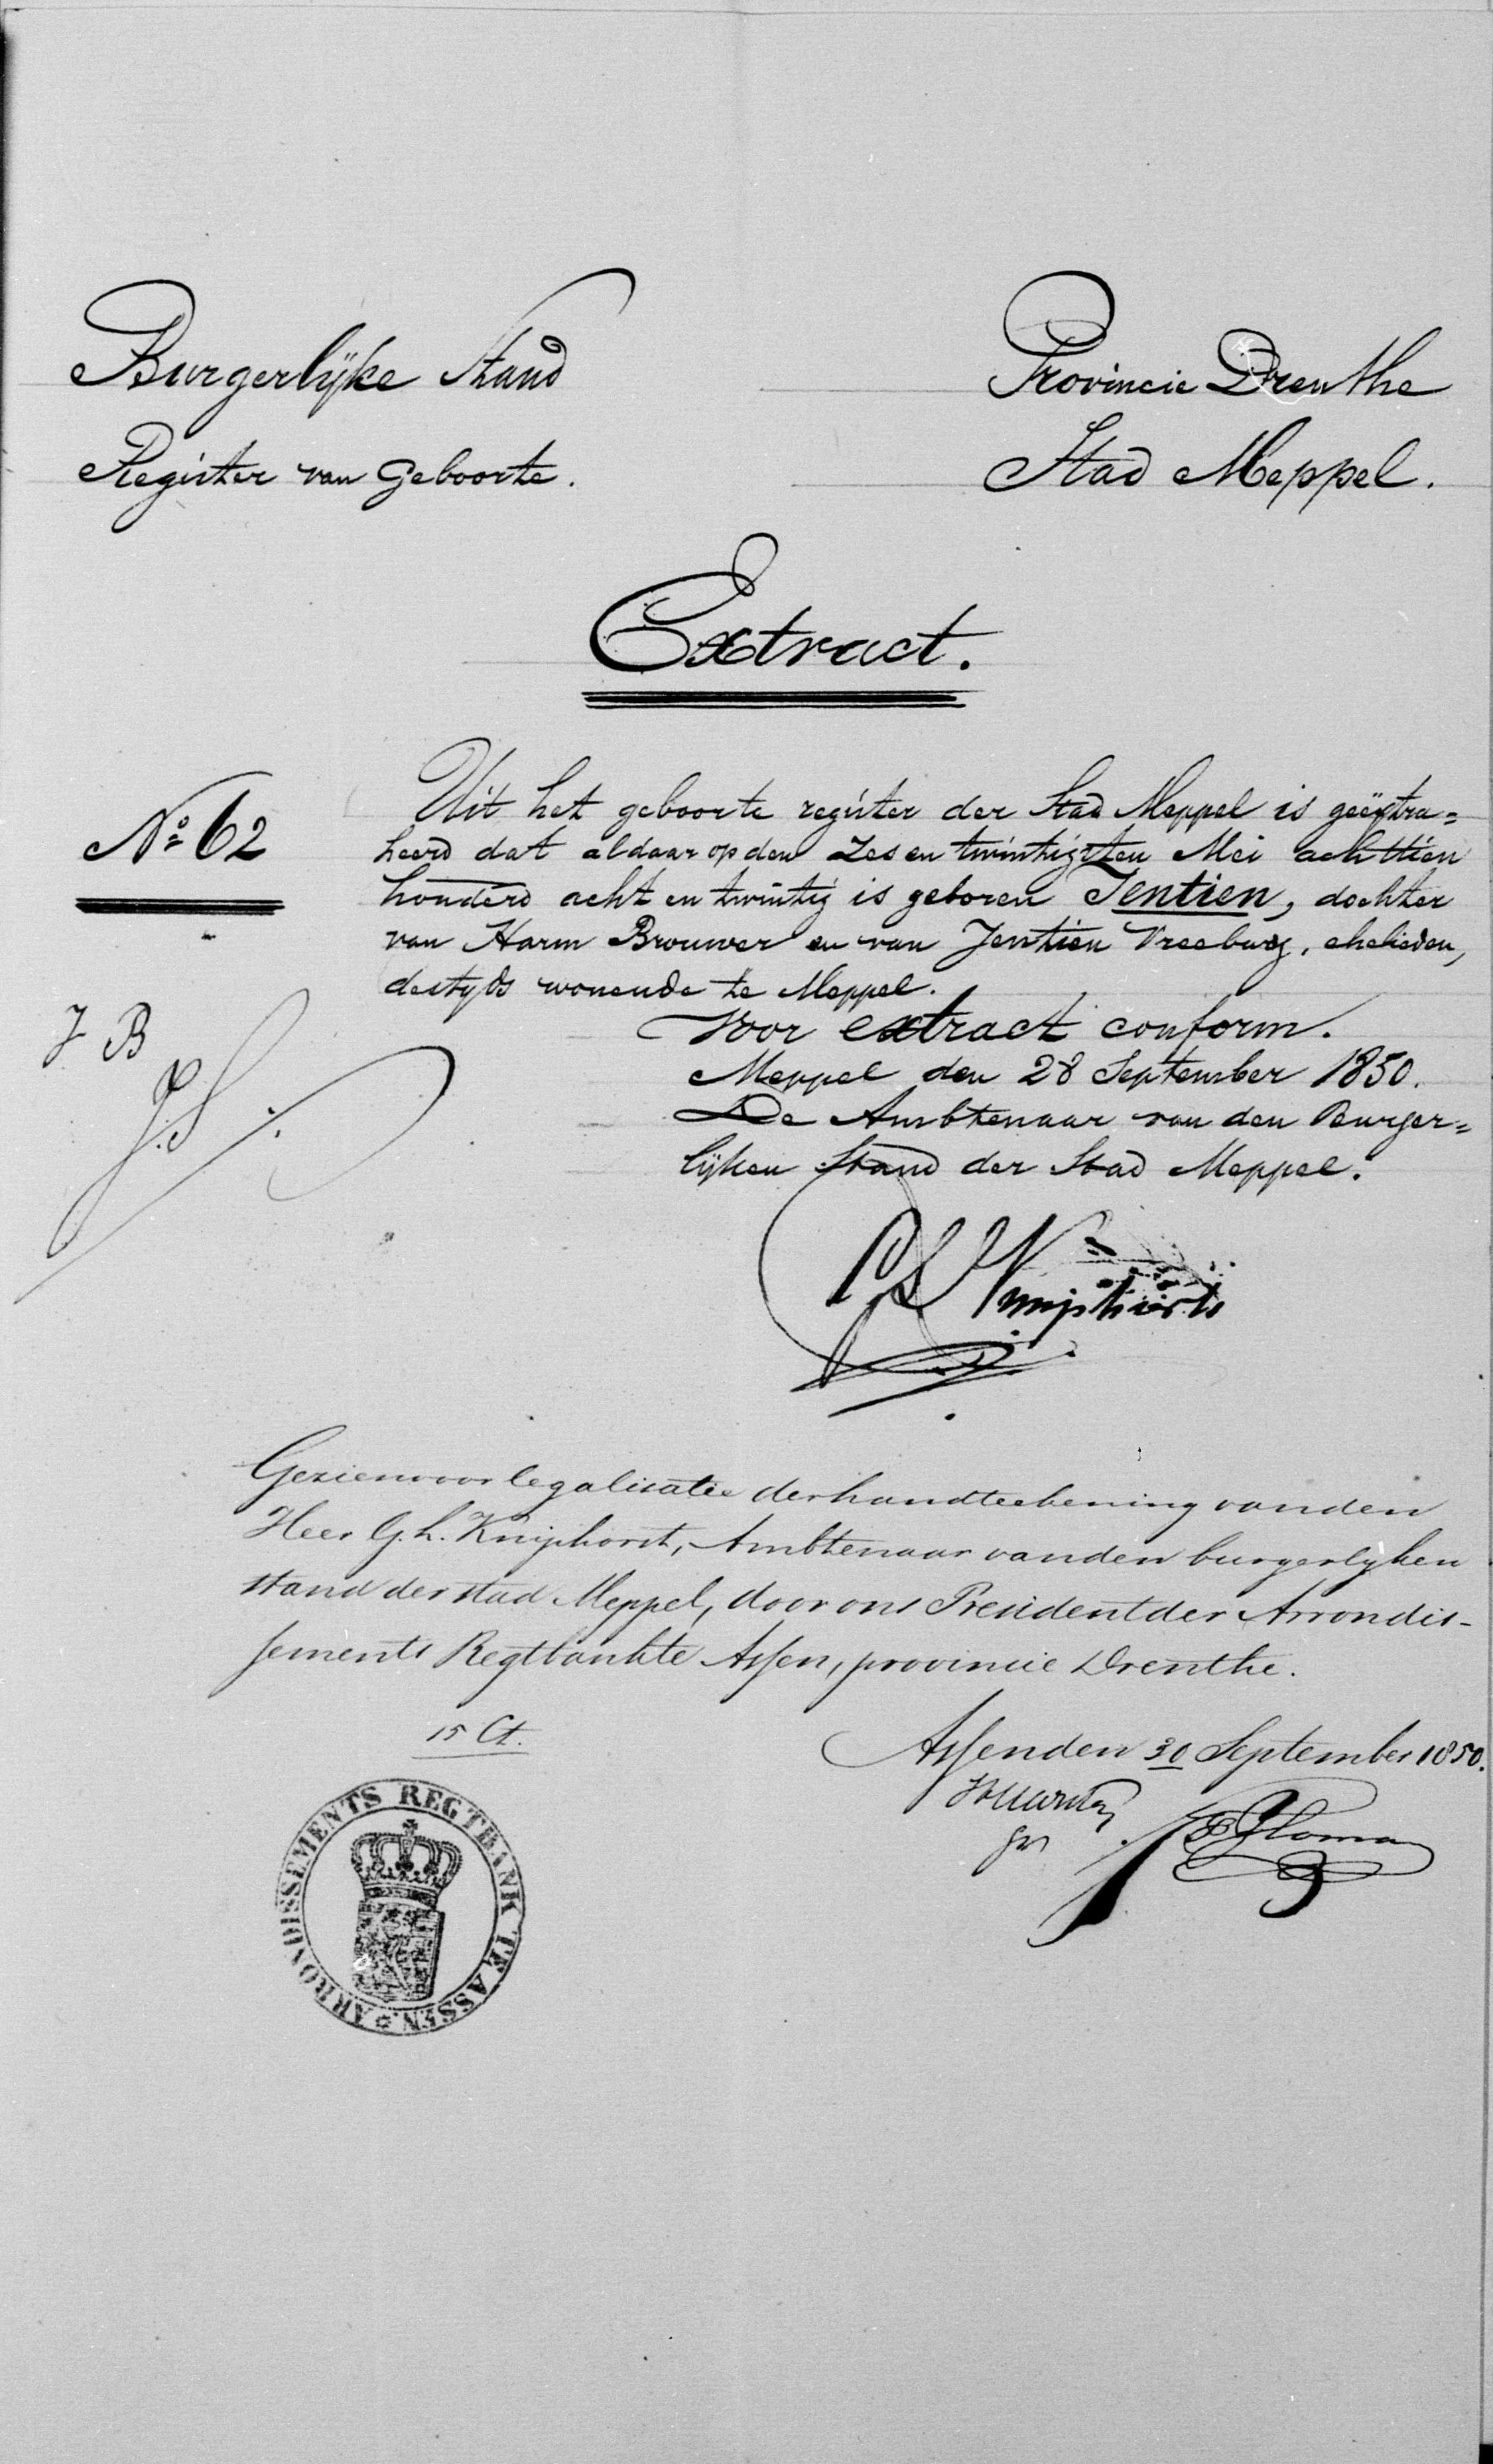 Burgerlyke Stand
Register van Geboorte.
Provincie Drenthe
Stad Meppel.
Extract.
No 62
Uit het geboorte register der Stad Meppel is geëxtra=
heerd dat aldaar op den zes en twintigsten Mei achttien
honderd acht en twintig is geboren Jentien, dochter
van Harm Brouwer en van Jentien Vreeburg, ehelieden,
destyds wonende te Meppel.
J B
Voor extract conform.
Meppel den 28 September 1850.
De Ambtenaar van den Burger=
lijken Stand der Stad Meppel.
GL Knijphorst
Gezien voor legalisatie der handteekening van den
Heer G.L. Knijphorst, Ambtenaar van den burgerlyken
stand der stad Meppel, door ons President der Arrondis-
sements Regtbank te Assen, provincie Drenthe.
15 Ct.
Assen den 30 September 1850.
ARRONDISSEMENTS REGTBANK TE ASSEN.